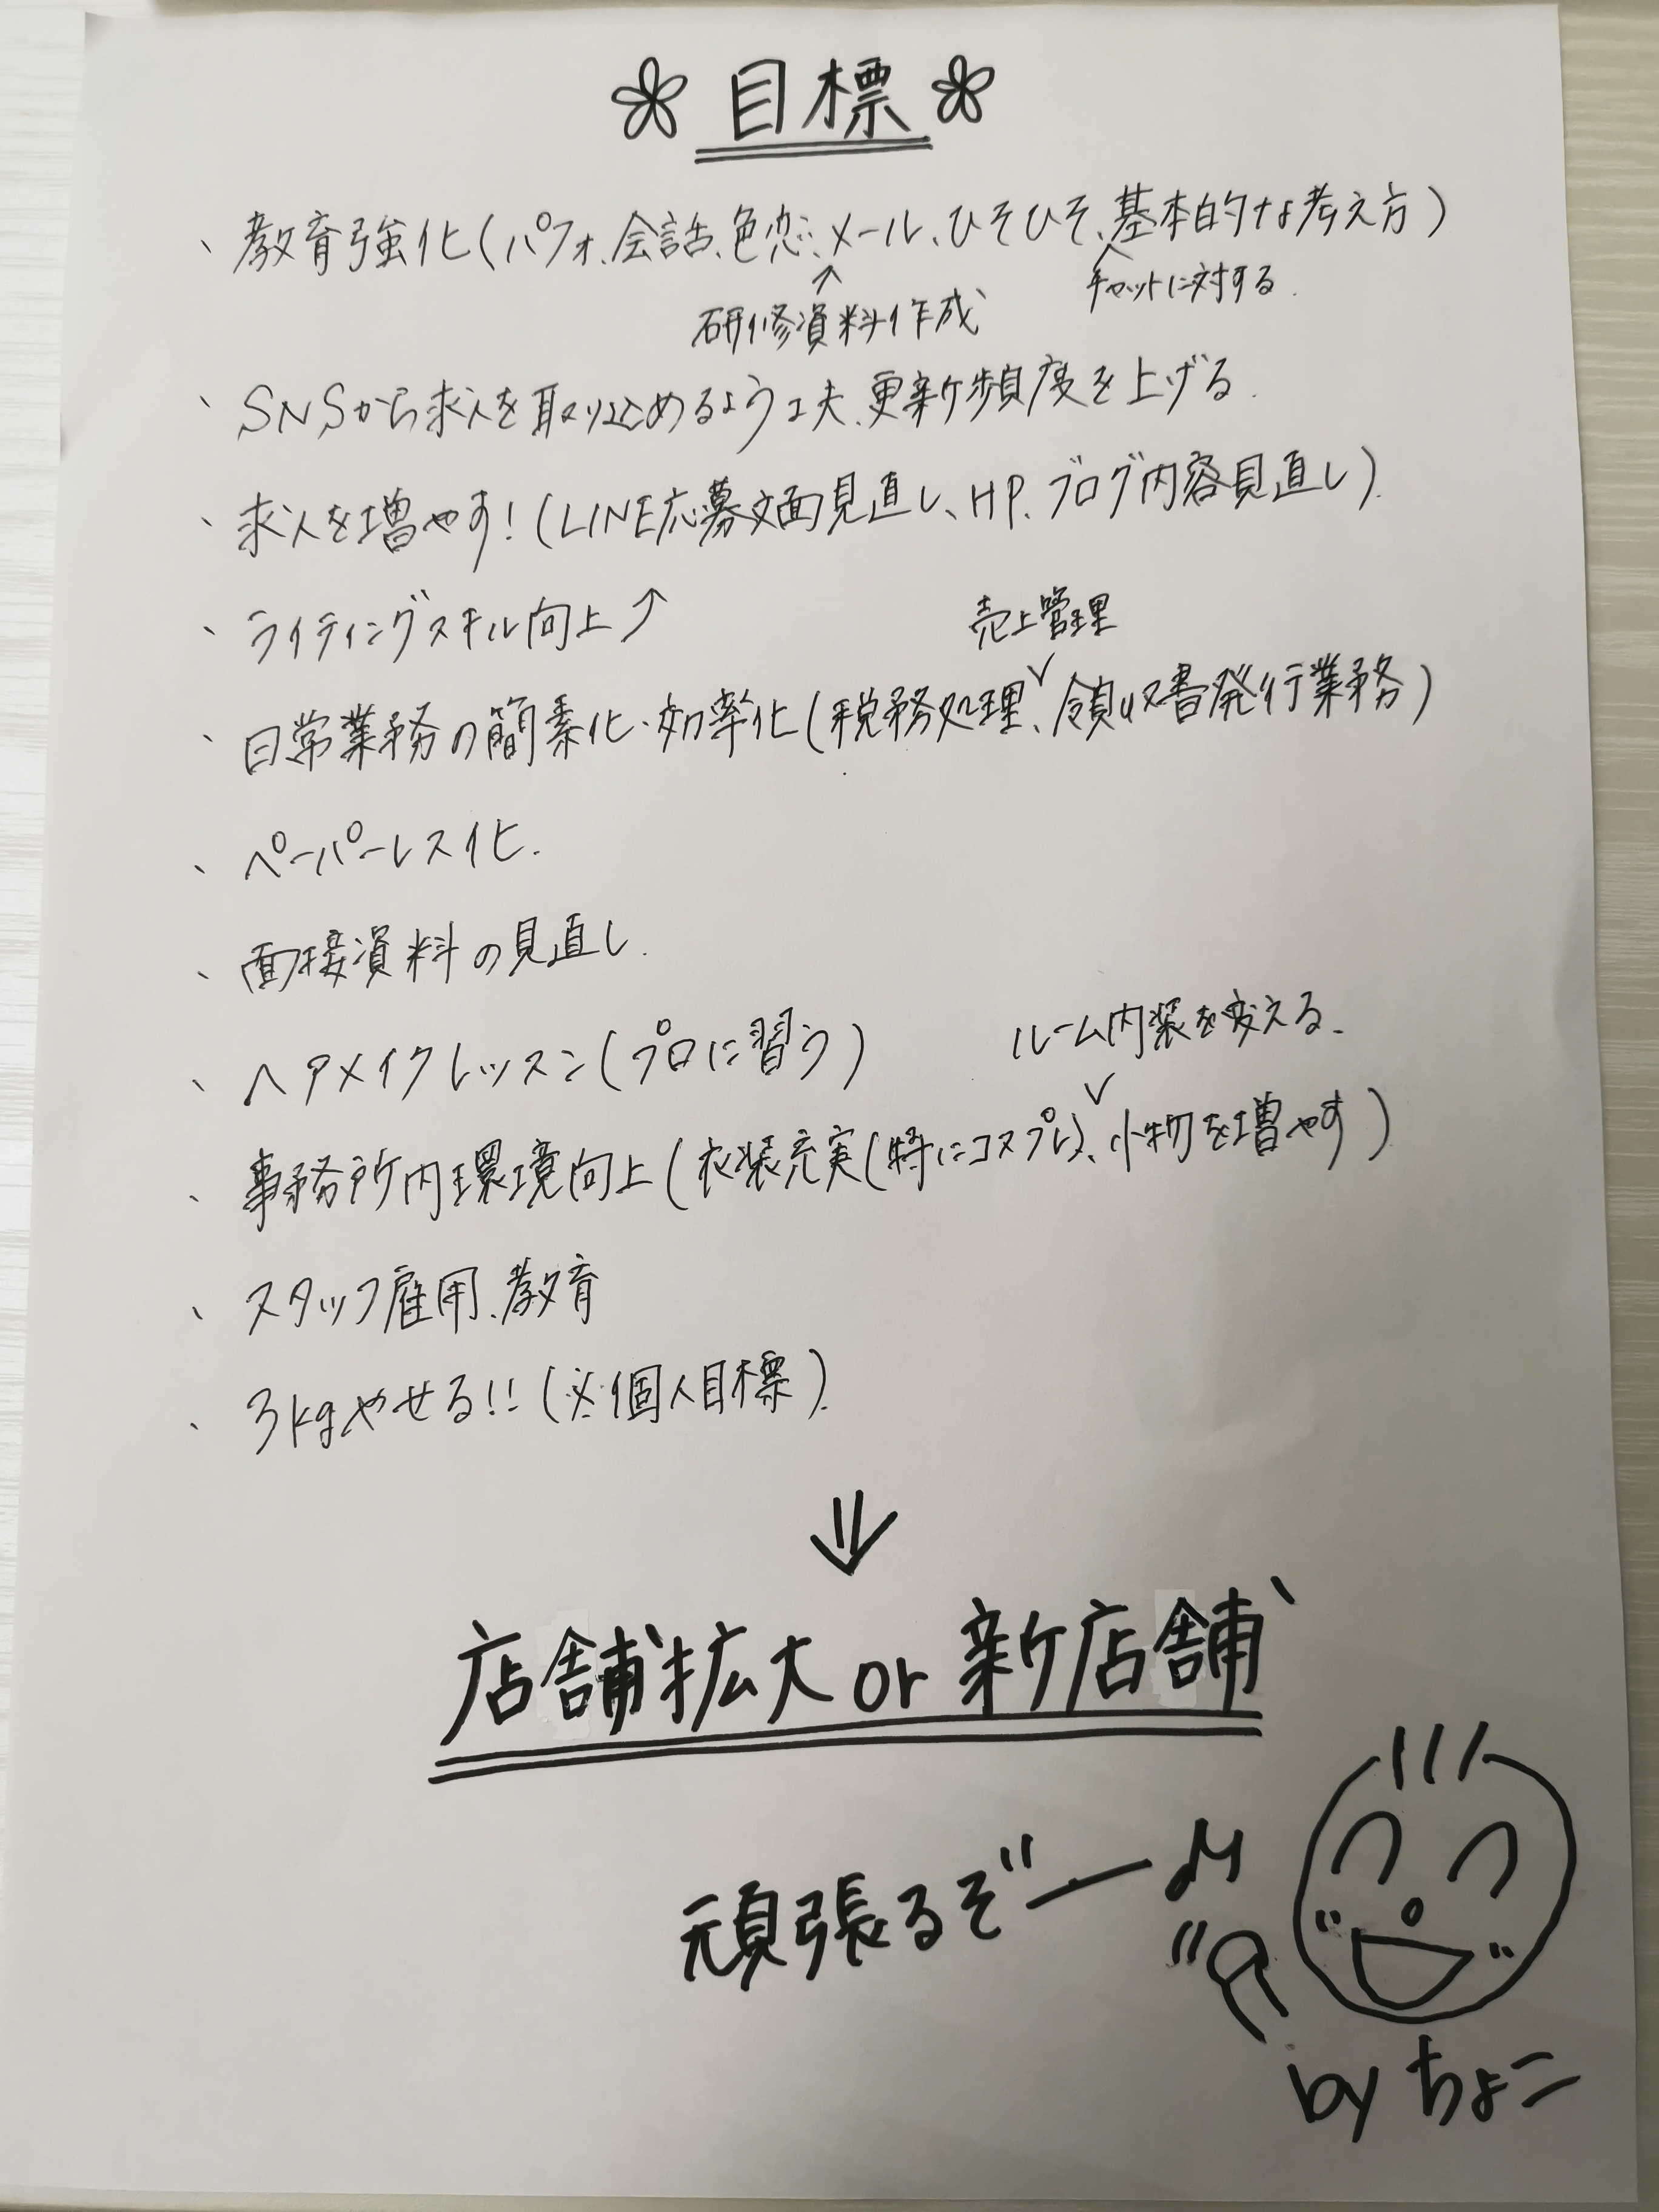 目標
、教育強化(パフォ、会話、色恋、メール、ひそひそ、基本的な考え方)
チャットに対する
研修資料作成
、SNSから求人を取り込めるよう工夫、更新頻度を上げる
、求人を増やす!(LINE応募文面見直し、HP、ブログ内容見直し)
、ライティングスキル向上↑
売上管理
、日常業務の簡素化・効率化(税務処理、領収書発行業務)
、ペーパーレス化
、面接資料の見直し
ルーム内装を変える、
、ヘアメイクレッスン(プロに習う)
、事務所内環境向上(衣装充実(特にコスプレ)、小物を増やす)
、スタッフ雇用、教育
、3kgやせる!!(※個人目標)
⇓
店舗拡大or新店舗
頑張るぞー♪
byちょこ